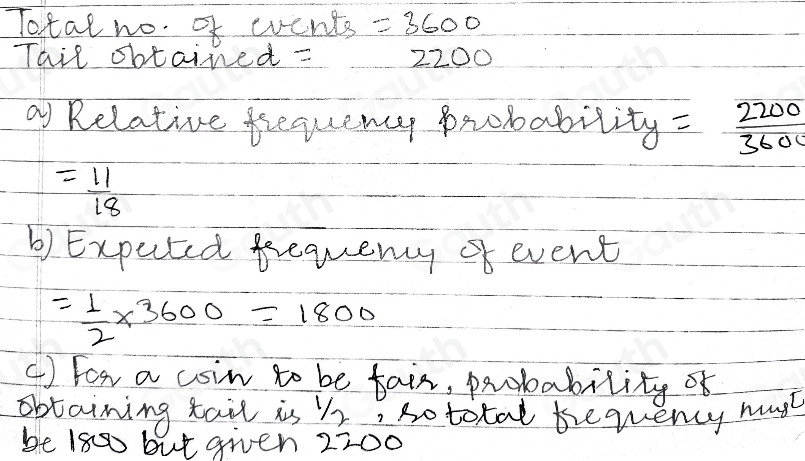 Total no. of events = 3600
Tail obtained = 2200
a) Relative frequency probability = 2200/3600
= 11/18
b) Expected frequency of event
= 1/2 x 3600 = 1800
c) For a coin to be fair, probability of
obtaining tail is 1/2, so total frequency must
be 1800 but given 2200